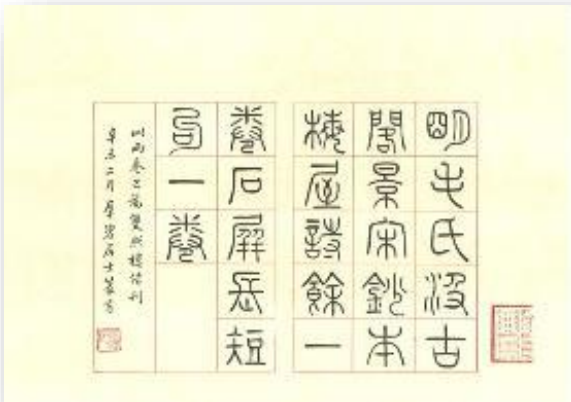 明毛氏汲古
閣景宋鈔本
梅屋詩餘一
卷石屏長短
句一卷
此兩卷已為雙照樓借刊
辛未二月羣碧居士